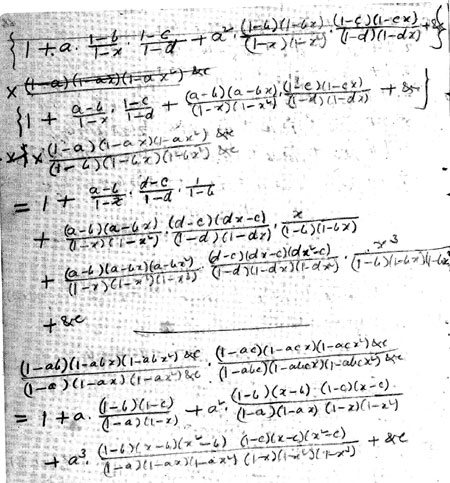 {1 + a · (1-b)/(1-x) · (1-c)/(1-d) + a² · (1-b)(1-bx)/(1-x)(1-x²) · (1-c)(1-cx)/(1-d)(1-dx) + &c}
× (1-a)(1-ax)(1-ax²) &c
{1 + (a-b)/(1-x) · (1-c)/(1-d) + (a-b)(a-bx)/(1-x)(1-x²) · (1-c)(1-cx)/(1-d)(1-dx) + &c}
× (1-a)(1-ax)(1-ax²) &c/(1-b)(1-bx)(1-bx²) &c
= 1 + (a-b)/(1-x) · (d-c)/(1-d) · 1/(1-b)
+ (a-b)(a-bx)/(1-x)(1-x²) · (d-c)(dx-c)/(1-d)(1-dx) · x/(1-b)(1-bx)
+ (a-b)(a-bx)(a-bx²)/(1-x)(1-x²)(1-x³) · (d-c)(dx-c)(dx²-c)/(1-d)(1-dx)(1-dx²) · x³/(1-b)(1-bx)(1-bx²)
+ &c
(1-ab)(1-abx)(1-abx²) &c/(1-a)(1-ax)(1-ax²) &c · (1-ac)(1-acx)(1-acx²) &c/(1-abc)(1-abcx)(1-abcx²) &c
= 1 + a · (1-b)(1-c)/(1-a)(1-x) + a² · (1-b)(x-b)·(1-c)(x-c)/(1-a)(1-ax)·(1-x)(1-x²)
+ a³ · (1-b)(x-b)(x²-b)/(1-a)(1-ax)(1-ax²) · (1-c)(x-c)(x²-c)/(1-x)(1-x²)(1-x³) + &c